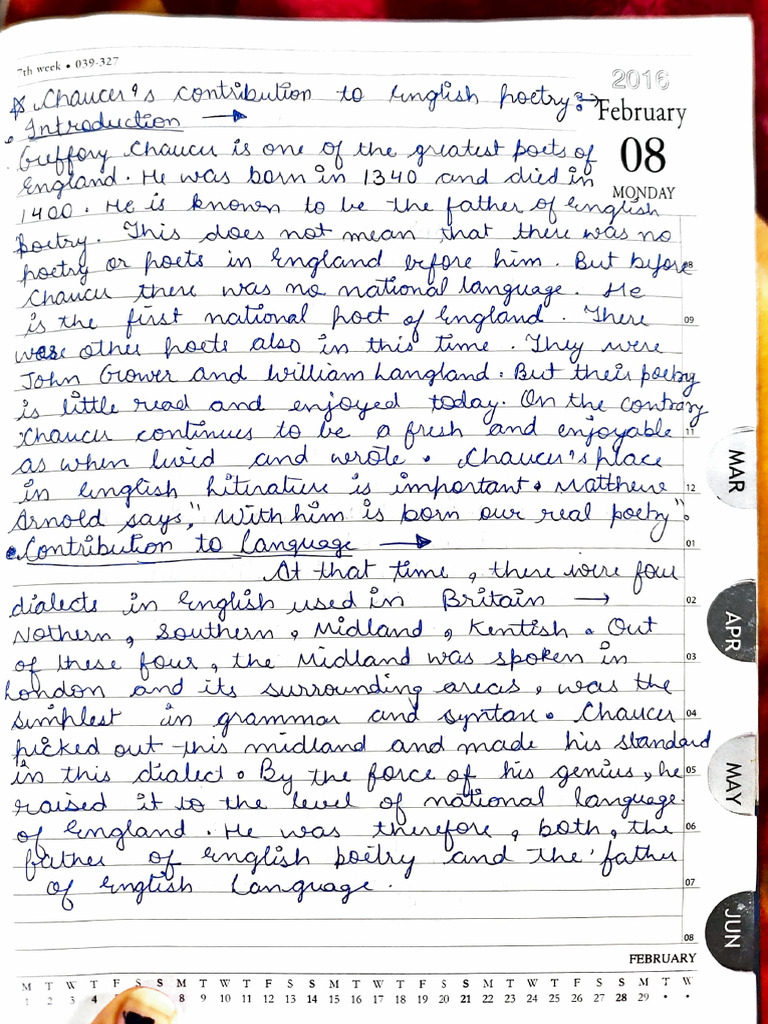 7th week • 039-327
2016
February
08
MONDAY
☆ Chaucer's contribution to English poetry :→
• Introduction →
Greffory Chaucer is one of the greatest poets of
England. He was born in 1340 and died in
1400. He is known to be the father of English
poetry. This does not mean that there was no
poetry or poets in England before him. But before
Chaucer there was no national language. He
is the first national poet of England. There
were other poets also in this time. They were
John Grower and William Langland. But their poetry
is little read and enjoyed today. On the contrary
Chaucer continues to be a fresh and enjoyable
as when livid and wrote. Chaucer's place
in English Literature is important. Matthew
Arnold says," With him is born our real poetry".
• Contribution to Language →
At that time, there were four
dialects in English used in Britain →
Nothern, Southern, Midland, Kentish. Out
of these four, the Midland was spoken in
London and its surrounding areas, was the
simplest in grammar and syntax. Chaucer
picked out this midland and made his standard
in this dialect. By the force of his genius, he
raised it to the level of national language
of England. He was therefore, both, the
father of English poetry and the father
of English Language.
08
09
11
12
01
02
03
04
05
06
07
08
MAR
APR
MAY
JUN
FEBRUARY
M T W T F S S M T W T F S S M T W T F S S M T W T F S S M T W
1 2 3 4 8 9 10 11 12 13 14 15 16 17 18 19 20 21 22 23 24 25 26 27 28 29 • •